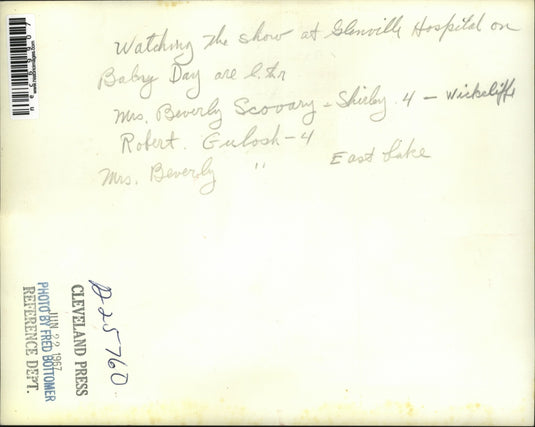 Watching the show at Glenville Hospital on
Baby Day are l. to r
Mrs. Beverly Scovary - Shirley 4 - Wickcliffe
Robert. Gulosh - 4
Mrs. Beverly " East Lake
D-25760
CLEVELAND PRESS
JUN 22 1967
PHOTO BY FRED BOTTOMER
REFERENCE DEPT.